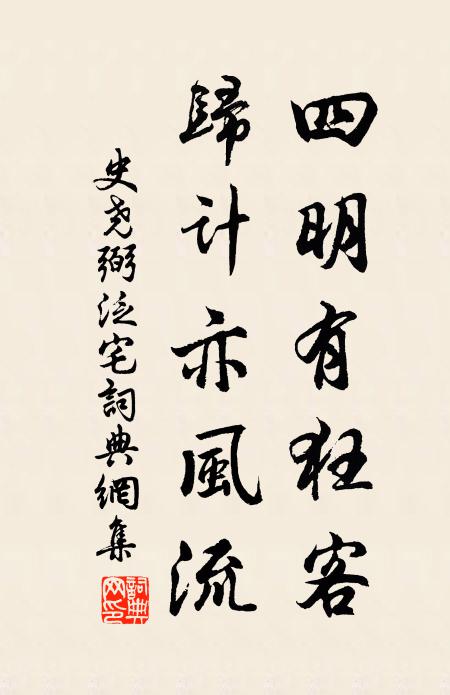 四明有狂客
歸计亦風流
史尧弼泛宅詞典網集
詞典網印